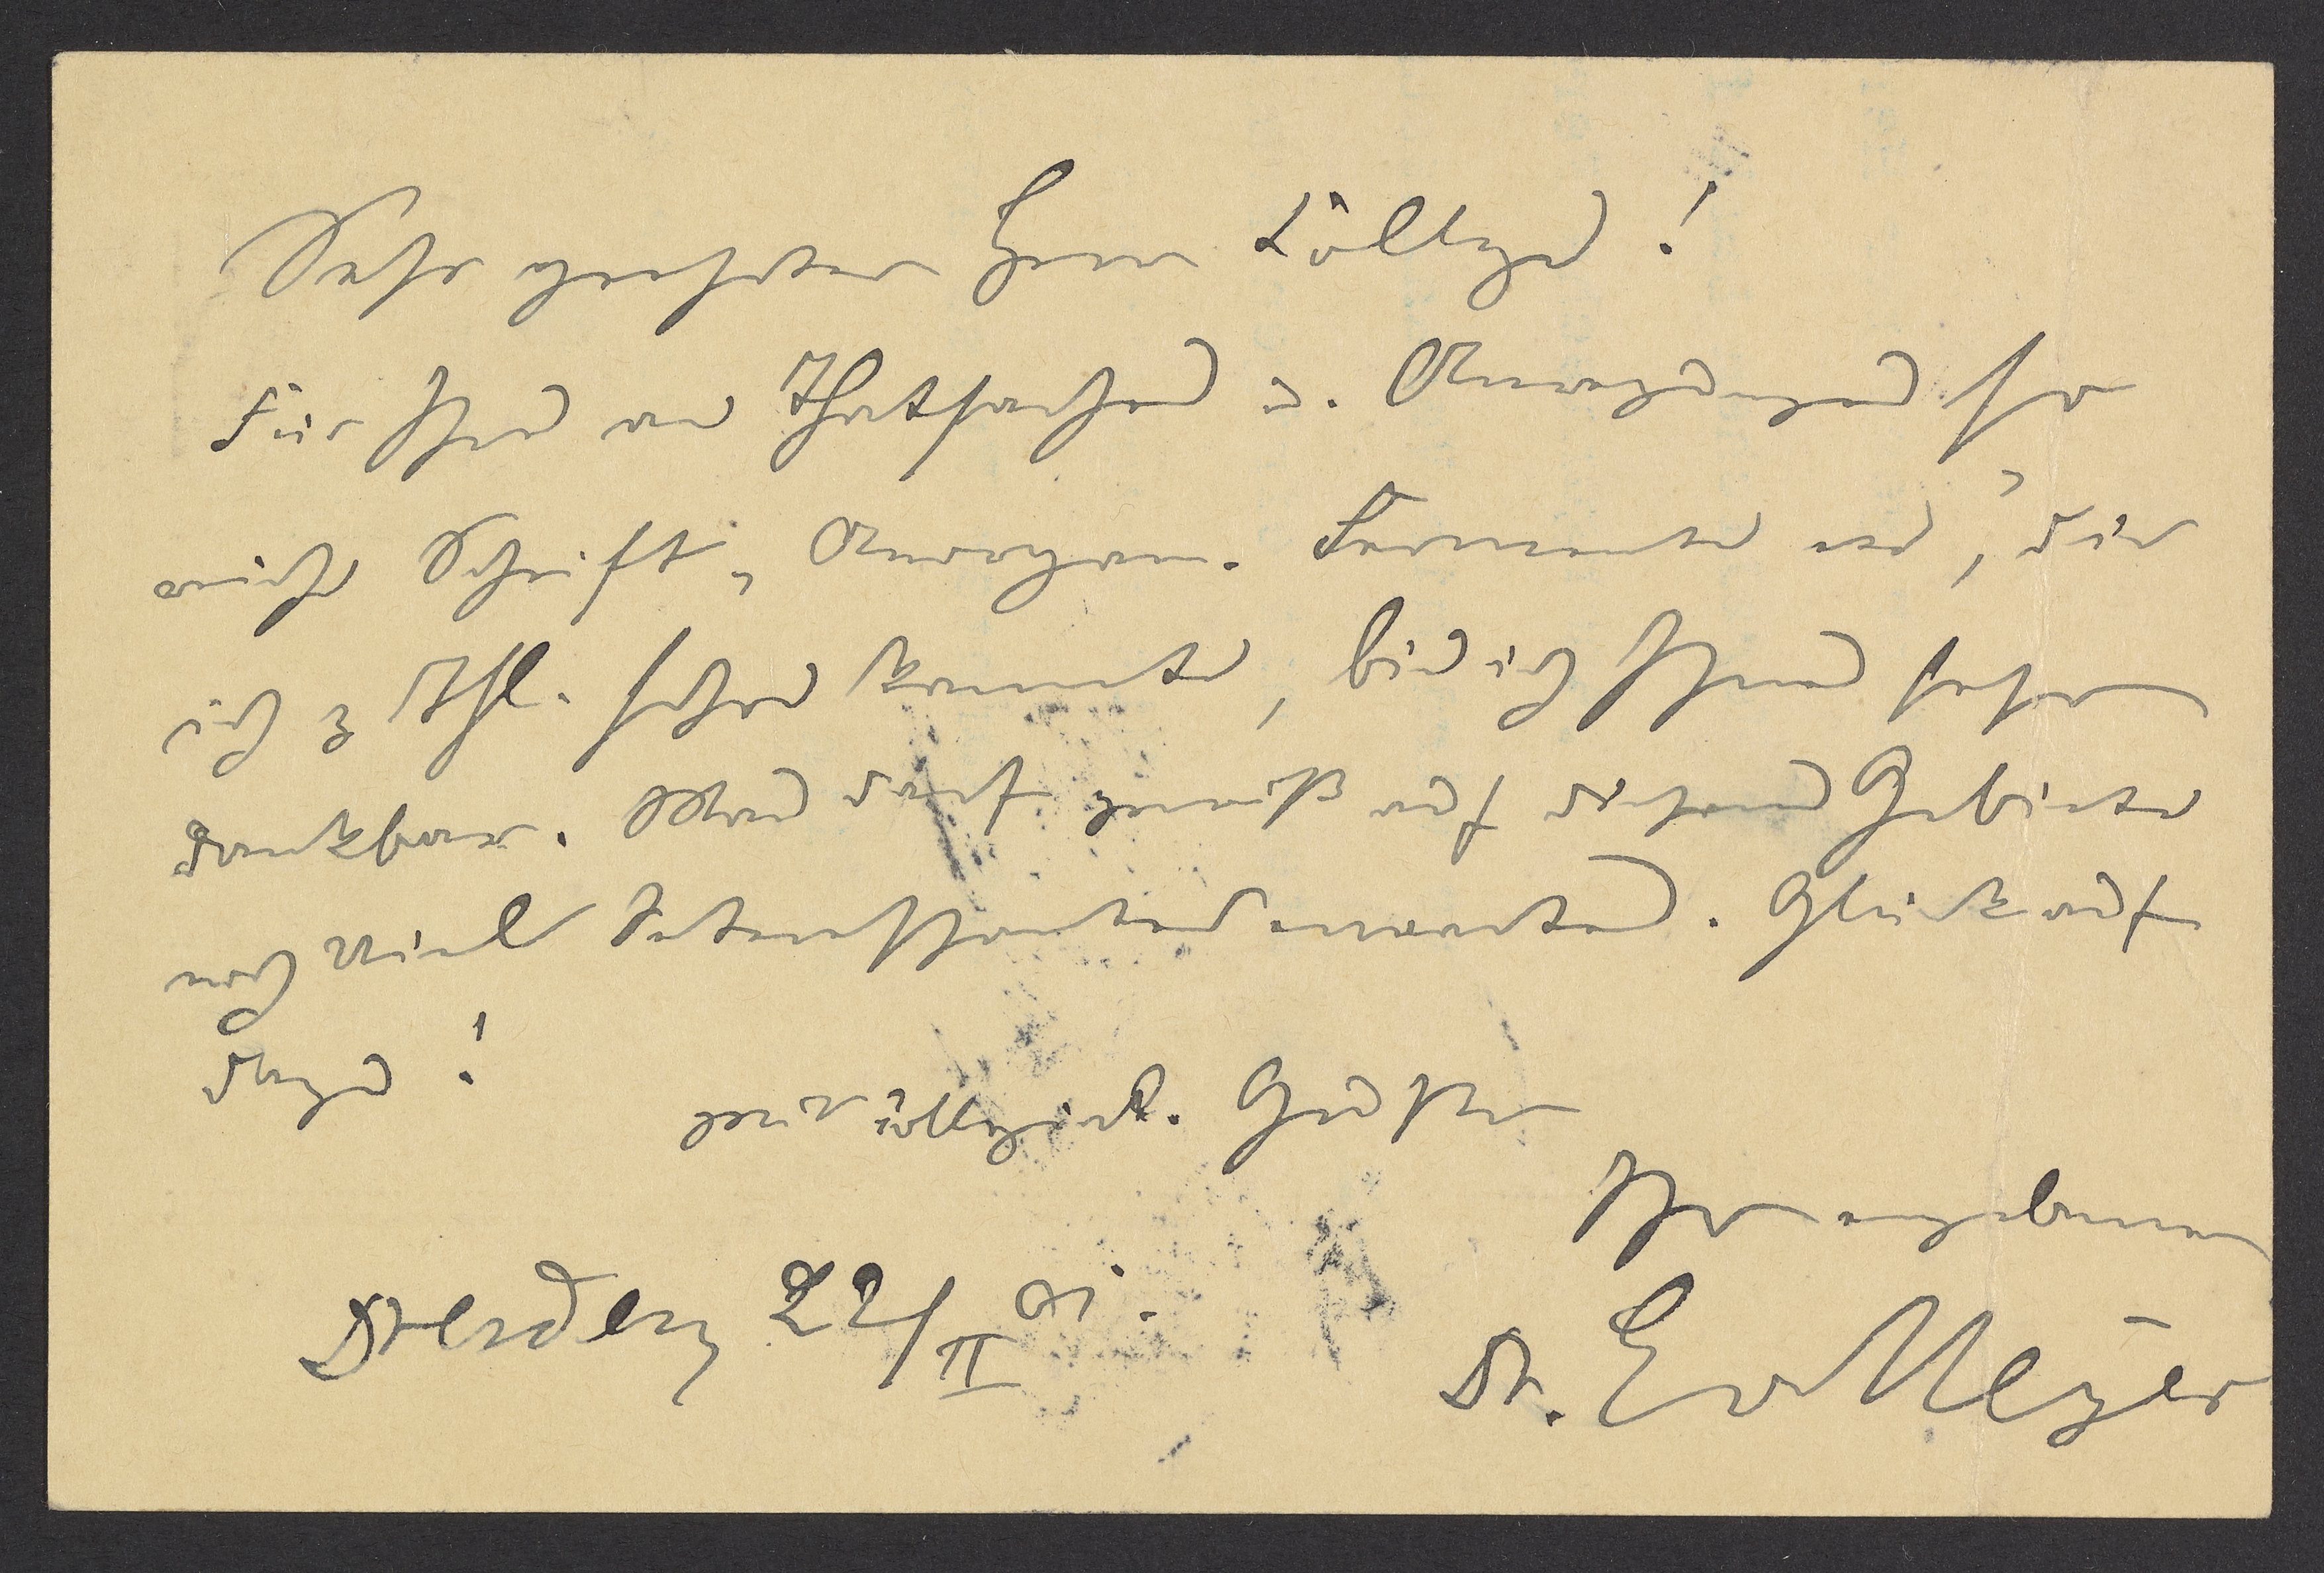 Sehr geehrter Herr College!
Für Ihre an Thatsachen u. Anregungen so
reiche Schrift „Anorgan. Fermente etc", die
ich z Thl. schon kannte, bin ich Ihnen sehr
dankbar. Man darf gewiß auf diesem Gebiete
noch viel Interessantes erwarten. Glück auf
dazu!
Mit collegial. Gruße
Ihr ergebener
Dresden 22/II 01.
Dr. E v Meyer